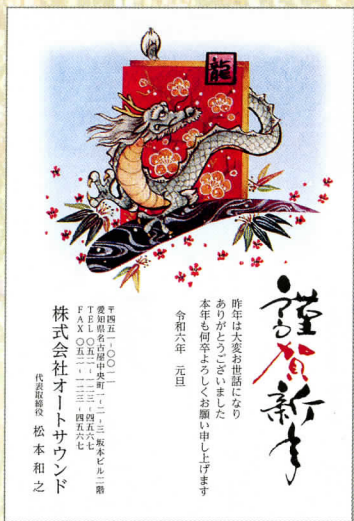 龍
謹賀新年
昨年は大変お世話になり
ありがとうございました
本年も何卒よろしくお願い申し上げます
令和六年　元旦
〒四五一-〇〇一一
愛知県名古屋中央町一-二-三 坂本ビル二階
TEL 〇五二-一二三-四五六七
FAX 〇五二-一二三-四五六七
株式会社オートサウンド
代表取締役 松本和之